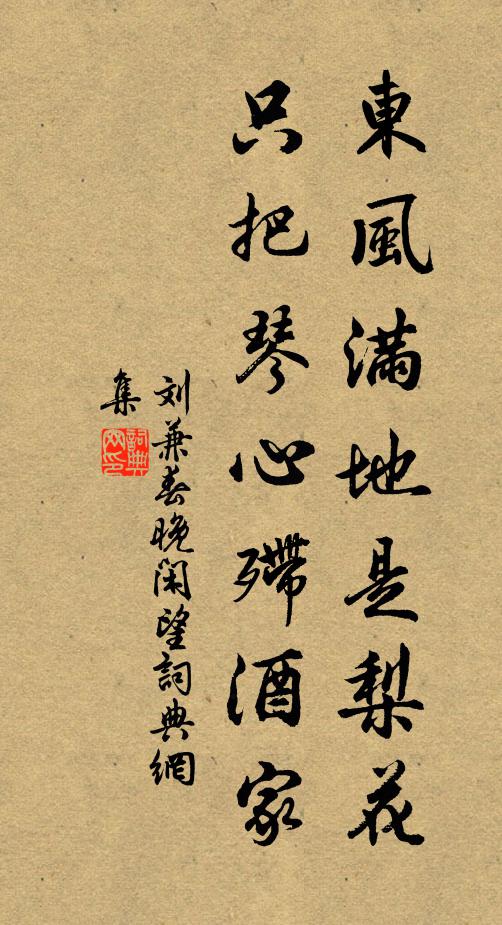 東風滿地是梨花
只把琴心殢酒家
刘兼春晚閑望詞典網
集
詞典网印